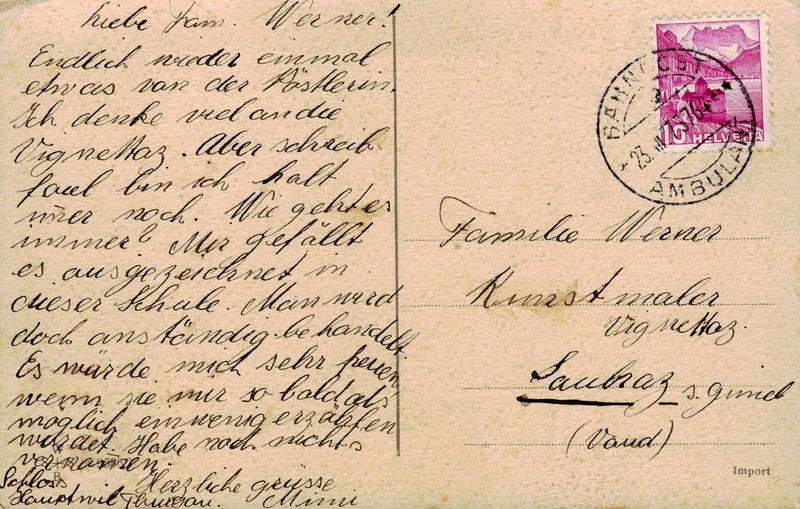 Liebe Fam. Werner!
Endlich wieder einmal
etwas von der Pöstlerin.
Ich denke viel an die
Vignettaz. Aber schreib
faul bin ich halt
imer noch. Wie geht es
immer? Mir gefällt
es ausgezeichnet in
dieser Schule. Man wird
doch anständig behandelt.
Es würde mich sehr freuen,
wenn sie mir so bald als
möglich ein wenig erzählten
würdet. Habe noch nichts
vernommen.
Schloss Herzliche grüsse
Hauptwil Thurgau. Mimi
BAHNPOST
23.
AMBULANT
10 HELVETIA
Familie Werner
Kunstmaler
Vignettaz
s. Gimel
(Vaud)
Import